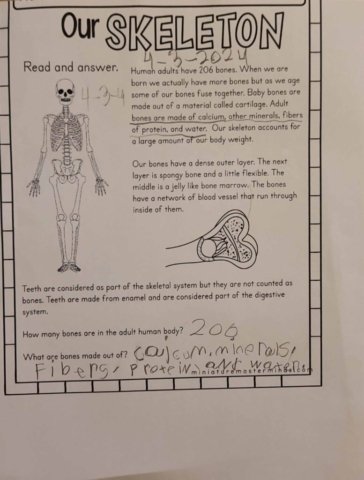 Our SKELETON
4-3-2024
Read and answer.
4-3-4
Human adults have 206 bones. When we are
born we actually have more bones but as we age
some of our bones fuse together. Baby bones are
made out of a material called cartilage. Adult
bones are made of calcium, other minerals, fibers
of protein, and water. Our skeleton accounts for
a large amount of our body weight.
Our bones have a dense outer layer. The next
layer is spongy bone and a little flexible. The
middle is a jelly like bone marrow. The bones
have a network of blood vessel that run through
inside of them.
Teeth are considered as part of the skeletal system but they are not counted as
bones. Teeth are made from enamel and are considered part of the digestive
system.
How many bones are in the adult human body? 206
What are bones made out of? calcum, minerals,
Fibers, protein, and water.
miniaturemastermindscom